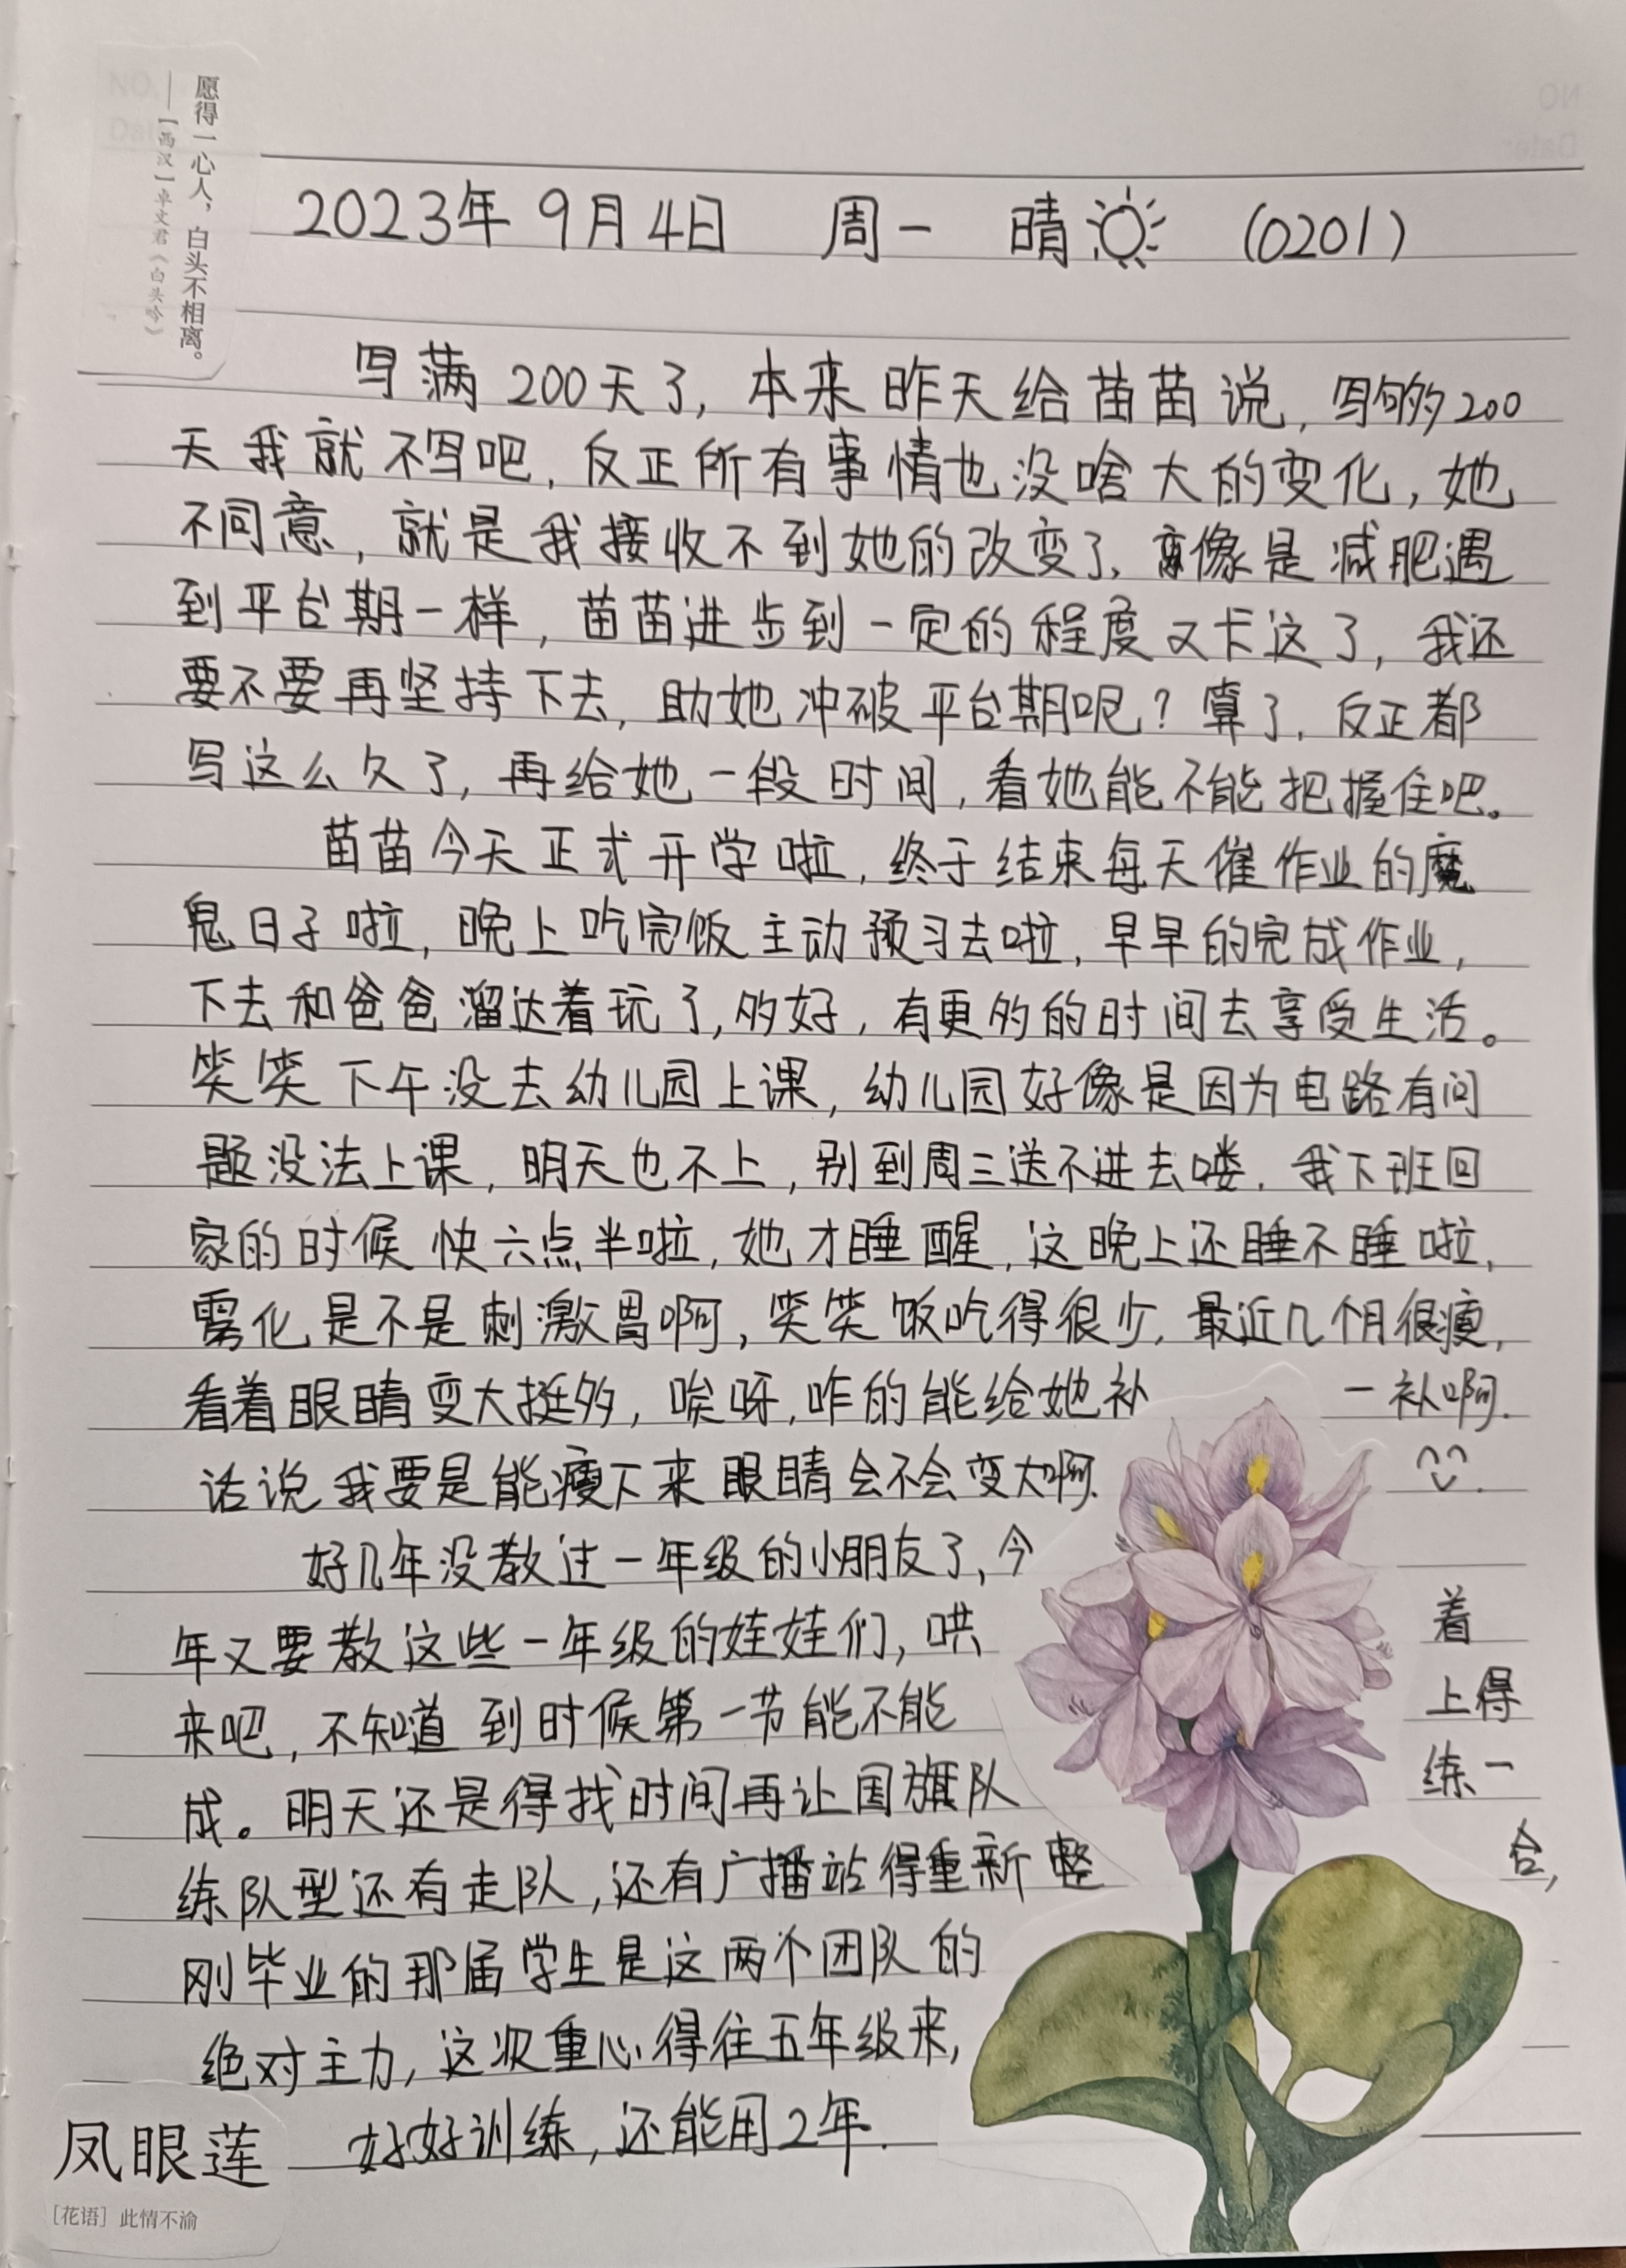 愿得一心人，白头不相离。
——［西汉］卓文君《白头吟》
2023年9月4日 周一 晴 (0201)
写满200天了，本来昨天给苗苗说，写够200
天我就不写吧，反正所有事情也没啥大的变化，她
不同意，就是我接收不到她的改变了，像是减肥遇
到平台期一样，苗苗进步到一定的程度又卡这了，我还
要不要再坚持下去，助她冲破平台期呢？算了，反正都
写这么久了，再给她一段时间，看她能不能把握住吧。
苗苗今天正式开学啦，终于结束每天催作业的魔
鬼日子啦，晚上吃完饭主动预习去啦，早早的完成作业，
下去和爸爸溜达着玩了，多好，有更多的时间去享受生活。
笑笑下午没去幼儿园上课，幼儿园好像是因为电路有问
题没法上课，明天也不上，别到周三送不进去喽．我下班回
家的时候快六点半啦，她才睡醒，这晚上还睡不睡啦，
雾化是不是刺激胃啊，笑笑饭吃得很少，最近几个月很瘦，
看着眼睛变大挺多，唉呀，咋的能给她补一补啊．
话说我要是能瘦下来眼睛会不会变大啊．
好几年没教过一年级的小朋友了，今
年又要教这些一年级的娃娃们，哄着
来吧，不知道到时候第一节能不能上得
成。明天还是得找时间再让国旗队练一
练队型还有走队，还有广播站得重新整合，
刚毕业的那届学生是这两个团队的
绝对主力，这次重心得往五年级来，
好好训练，还能用2年．
凤眼莲
［花语］此情不渝